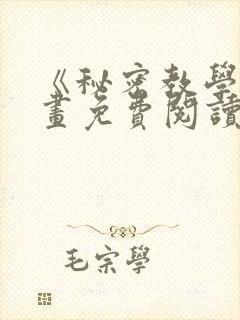 《秘密教學
畫免費閱讀
毛宗學